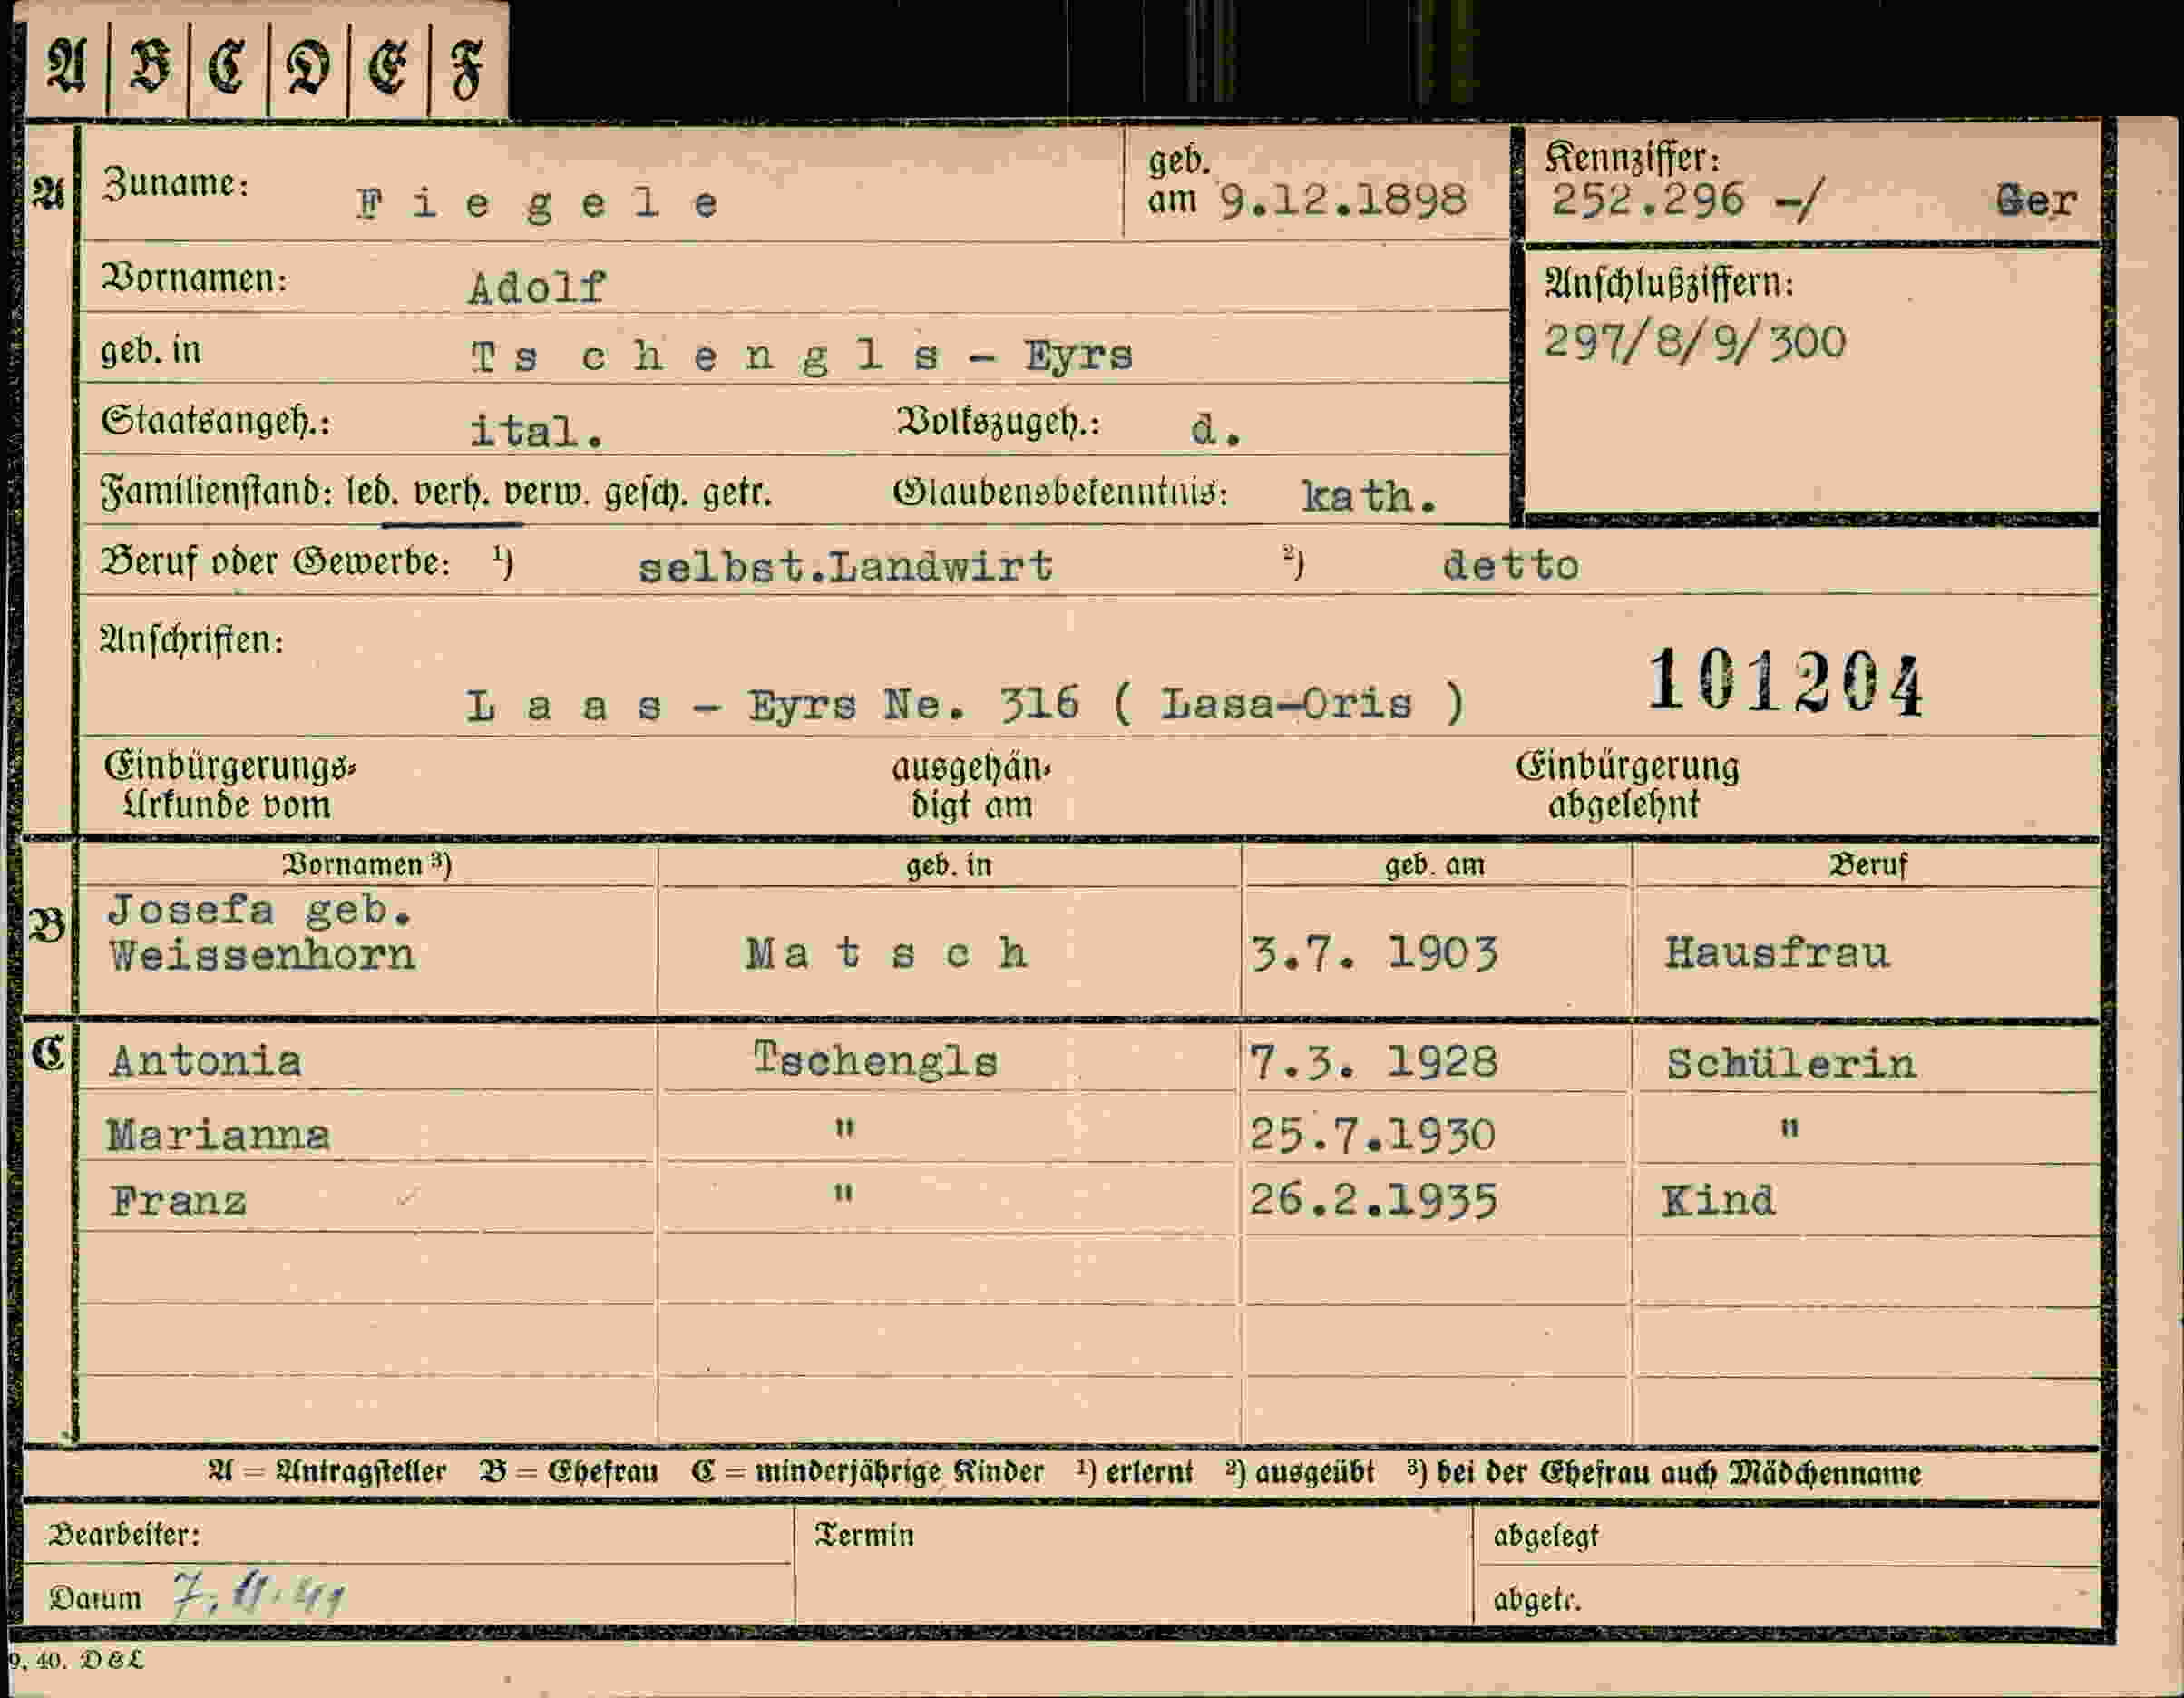 A B C D E F
A Zuname: Fiegele geb. am 9.12.1898 Kennziffer: 252.296 -/ Ger
Vornamen: Adolf Anschlußziffern:
geb. in Tschengls - Eyrs 297/8/9/300
Staatsangeh.: ital. Volkszugeh.: d.
Familienstand: led. verh. verw. gesch. getr. Glaubensbekenntnis: kath.
Beruf oder Gewerbe: 1) selbst.Landwirt 2) detto
Anschriften:
Laas - Eyrs Ne. 316 ( Lasa-Oris ) 101204
Einbürgerungs- ausgehän- Einbürgerung
Urkunde vom digt am abgelehnt
Vornamen 3) geb. in geb. am Beruf
B Josefa geb.
Weissenhorn Matsch 3.7. 1903 Hausfrau
C Antonia Tschengls 7.3. 1928 Schülerin
Marianna " 25.7.1930 "
Franz " 26.2.1935 Kind
A = Antragsteller B = Ehefrau C = minderjährige Kinder 1) erlernt 2) ausgeübt 3) bei der Ehefrau auch Mädchenname
Bearbeiter: Termin abgelegt
Datum 7.11.41 abgetr.
9. 40. D&L